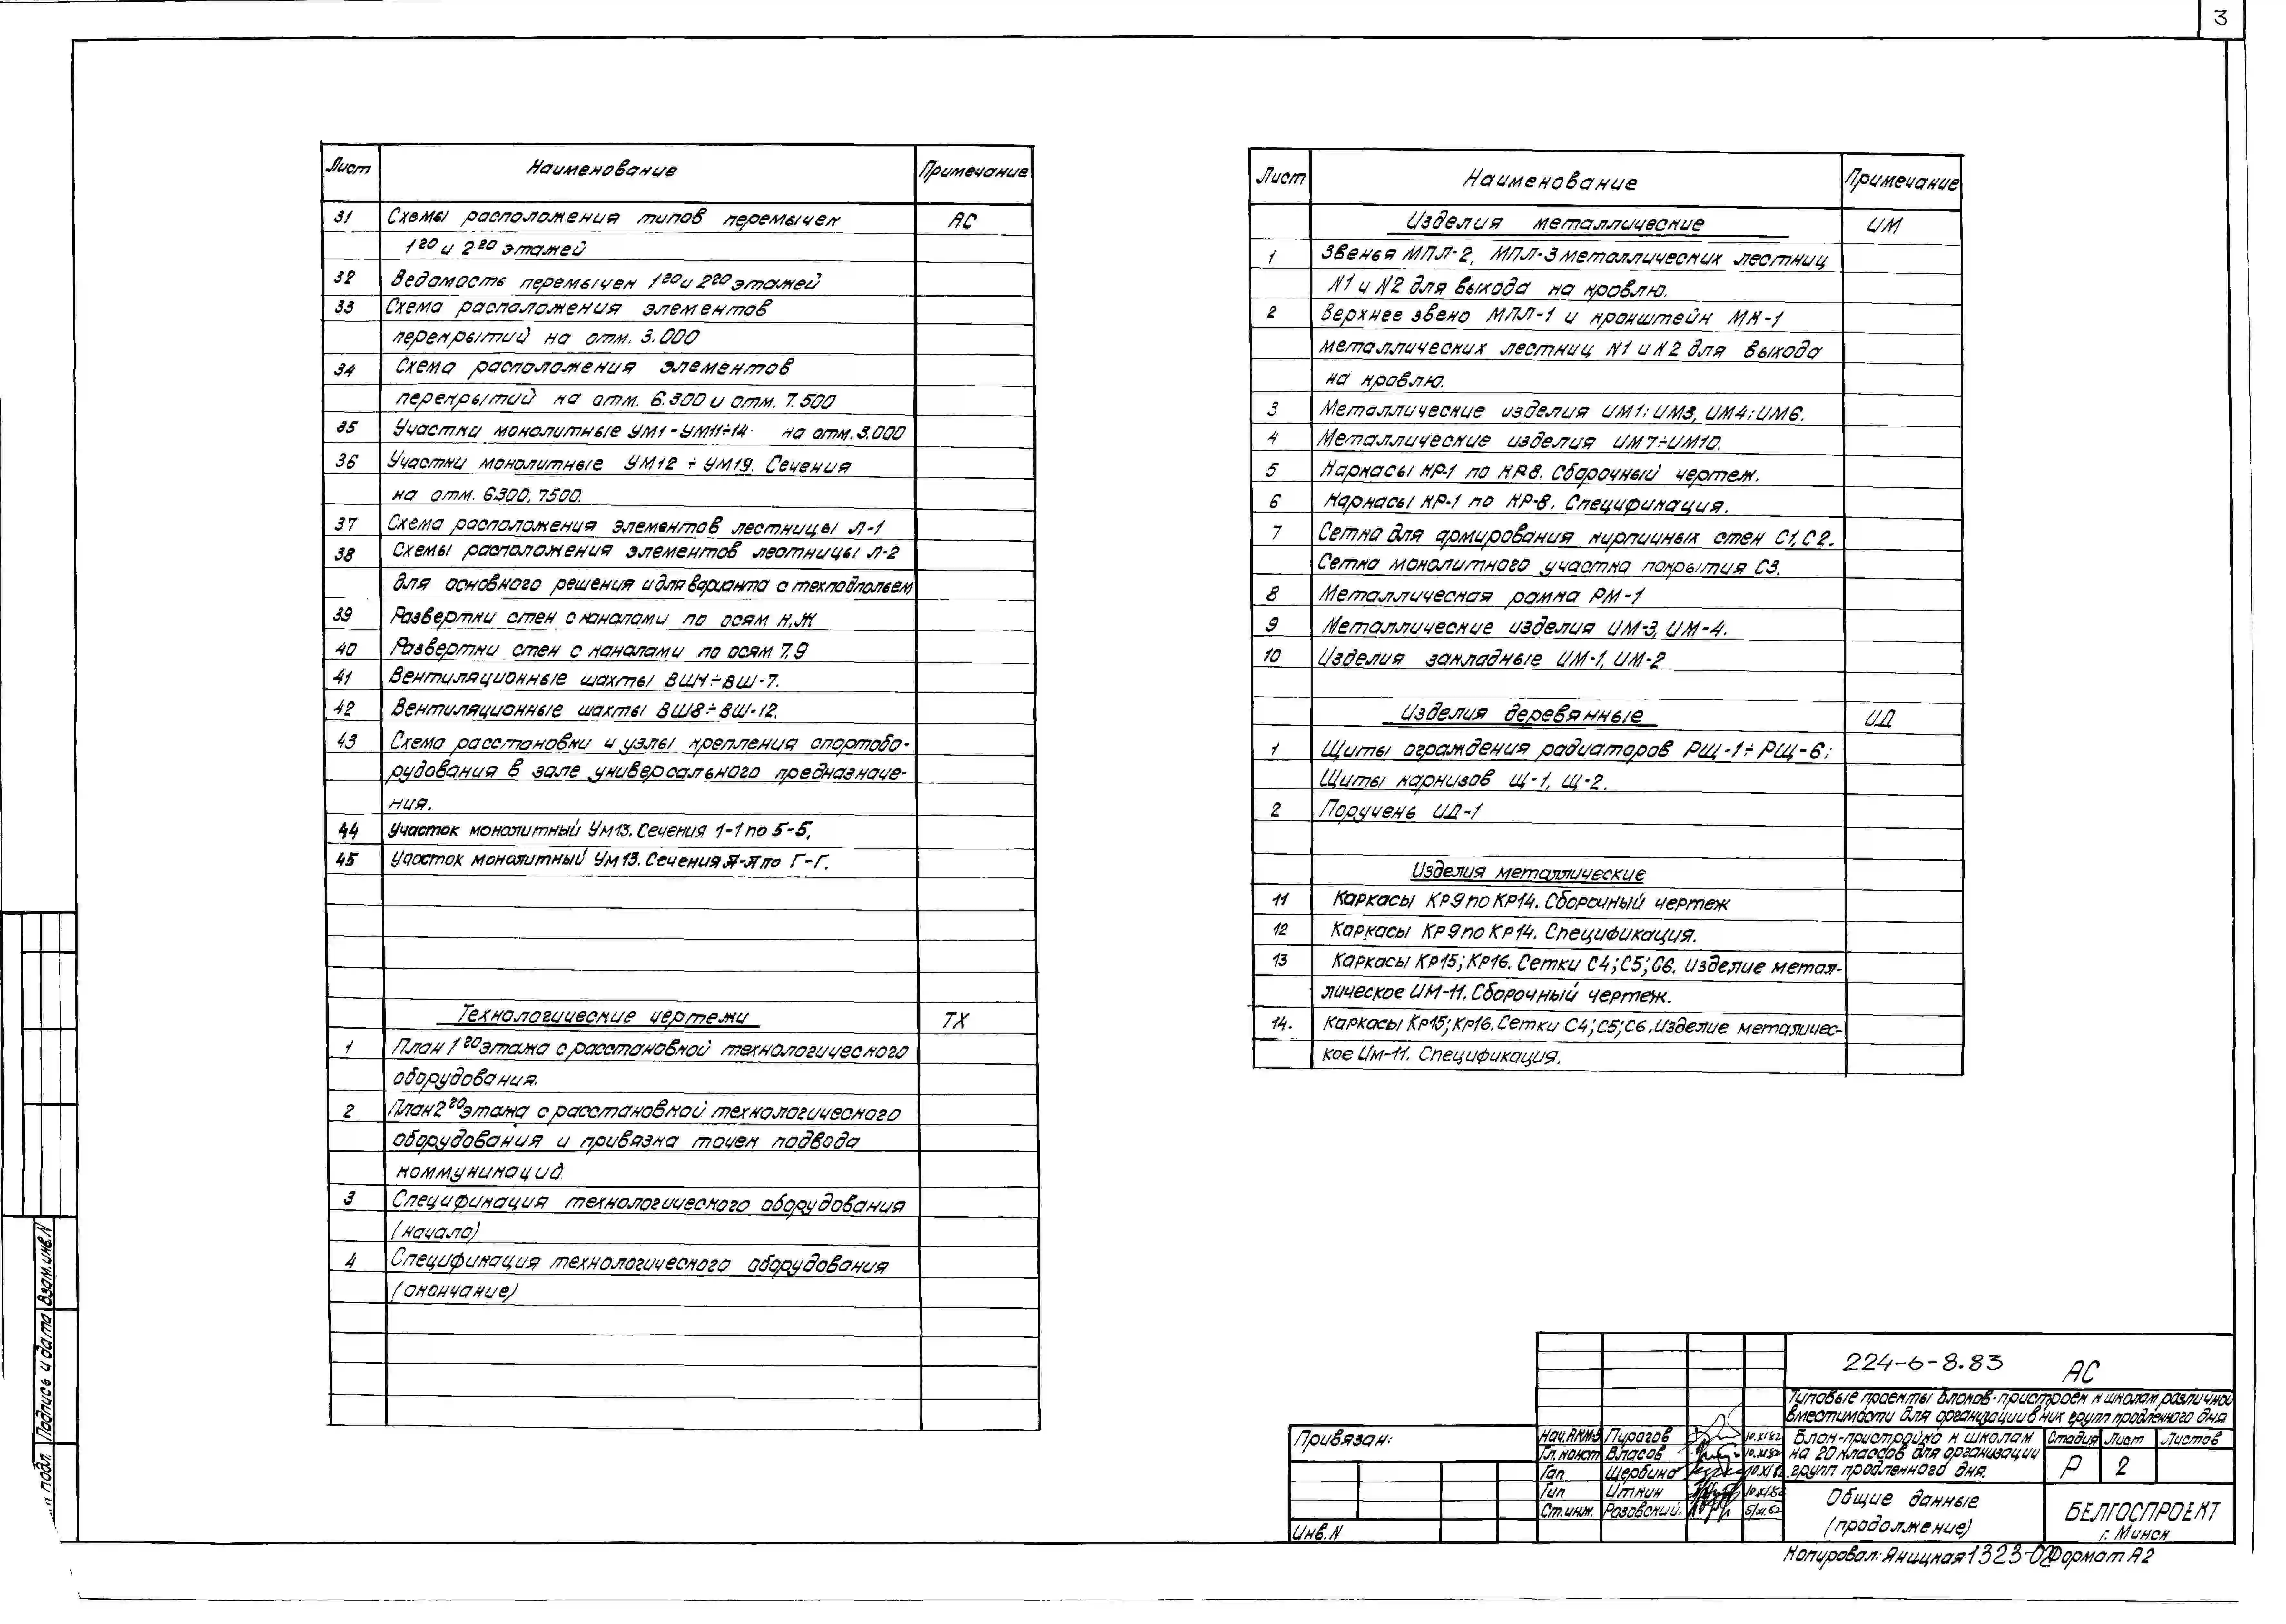 3
Лист Наименование Примечание
31 Схемы расположения типов перемычек АС
1го и 2го этажей
32 Ведомость перемычек 1го и 2го этажей
33 Схема расположения элементов
перекрытий на отм. 3.000
34 Схема расположения элементов
перекрытий на отм. 6.300 и отм. 7.500
35 Участки монолитные УМ1-УМ11÷14 на отм. 3.000
36 Участки монолитные УМ12 ÷ УМ19. Сечения
на отм. 6.300, 7.500.
37 Схема расположения элементов лестницы Л-1
38 Схемы расположения элементов лестницы Л-2
для основного решения и для варианта с техподпольем
39 Развертки стен с каналами по осям К,Ж
40 Развертки стен с каналами по осям 7,9
41 Вентиляционные шахты ВШ1÷ВШ-7.
42 Вентиляционные шахты ВШ8÷ВШ-12.
43 Схема расстановки и узлы крепления спортобо-
рудования в зале универсального предназначе-
ния.
44 Участок монолитный Ум13. Сечения 1-1 по 5-5.
45 Участок монолитный Ум13. Сечения А-А по Г-Г.
Технологические чертежи ТХ
1 План 1го этажа с расстановкой технологического
оборудования.
2 План 2го этажа с расстановкой технологического
оборудования и привязка точек подвода
коммуникаций.
3 Спецификация технологического оборудования
(начало)
4 Спецификация технологического оборудования
(окончание)
Лист Наименование Примечание
Изделия металлические ИМ
1 Звенья МПЛ-2, МПЛ-3 металлических лестниц
N1 и N2 для выхода на кровлю.
2 Верхнее звено МПЛ-1 и кронштейн МК-1
металлических лестниц N1 и N2 для выхода
на кровлю.
3 Металлические изделия ИМ1; ИМ3, ИМ4; ИМ6.
4 Металлические изделия ИМ7÷ИМ10.
5 Каркасы КР-1 по КР8. Сборочный чертеж.
6 Каркасы КР-1 по КР-8. Спецификация.
7 Сетка для армирования кирпичных стен С1, С2.
Сетка монолитного участка покрытия С3.
8 Металлическая рамка РМ-1
9 Металлические изделия ИМ-3, ИМ-4.
10 Изделия закладные ИМ-1, ИМ-2
Изделия деревянные ИД
1 Щиты ограждения радиаторов РЩ-1÷РЩ-6;
Щиты карнизов Щ-1, Щ-2.
2 Поручень ИД-1
Изделия металлические
11 Каркасы КР9 по КР14. Сборочный чертеж
12 Каркасы КР9 по КР14. Спецификация.
13 Каркасы Кр15; Кр16. Сетки С4; С5; С6. Изделие метал-
лическое ИМ-11. Сборочный чертеж.
14. Каркасы Кр15; Кр16. Сетки С4; С5; С6. Изделие металичес-
кое Им-11. Спецификация.
Взам. инв. N
Подпись и дата
подл.
Привязан:
Инв. N
224-6-8.83 АС
Типовые проекты блоков-пристроек к школам различной
вместимости для организации в них групп продленного дня
Нач. АКМ-5 Пирогов 10.XI.82
Гл. констр Власов 10.XI.82
Гап Щербина 10.XI.82
Гип Иткин 10.XI.82
Ст. инж. Розовский 5/XI.82
Блок-пристройка к школам
на 20 классов для организации
групп продленного дня.
Стадия Лист Листов
Р 2
Общие данные
(продолжение)
БЕЛГОСПРОЕКТ
г. Минск
Копировал: Яницкая 1323-02 Формат А2